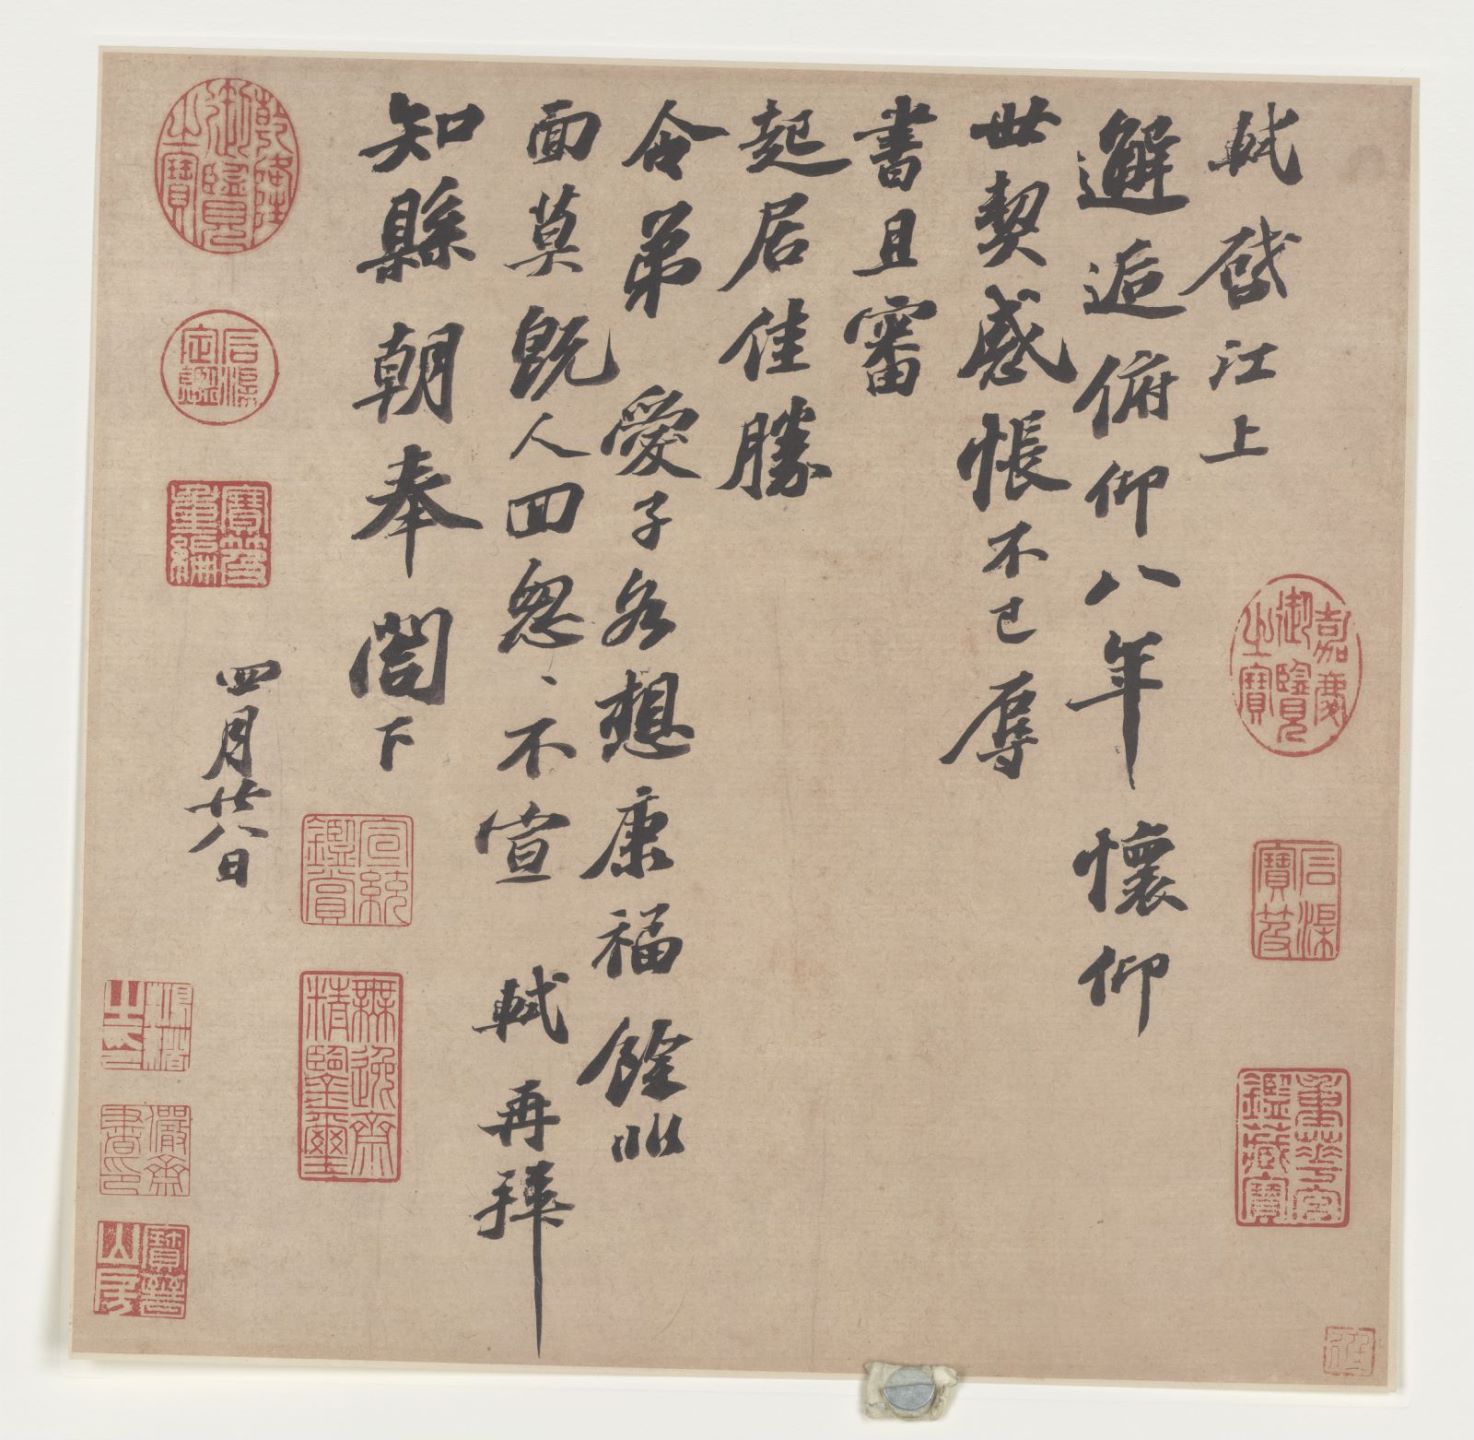 軾啓江上
邂逅俯仰八年懷仰
世契感悵不已辱
書且審
起居佳勝
令弟愛子各想康福餘非
面莫既人回怱、不宣軾再拜
知縣朝奉閤下
四月廿八日
乾隆御覽之寶
石渠定鑑
寶笈重編
宣統鑑賞
無逸齋精鑒璽
儼齋書印
寶蘊山房
嘉慶御覽之寶
石渠寶笈
重華宮鑑藏寶